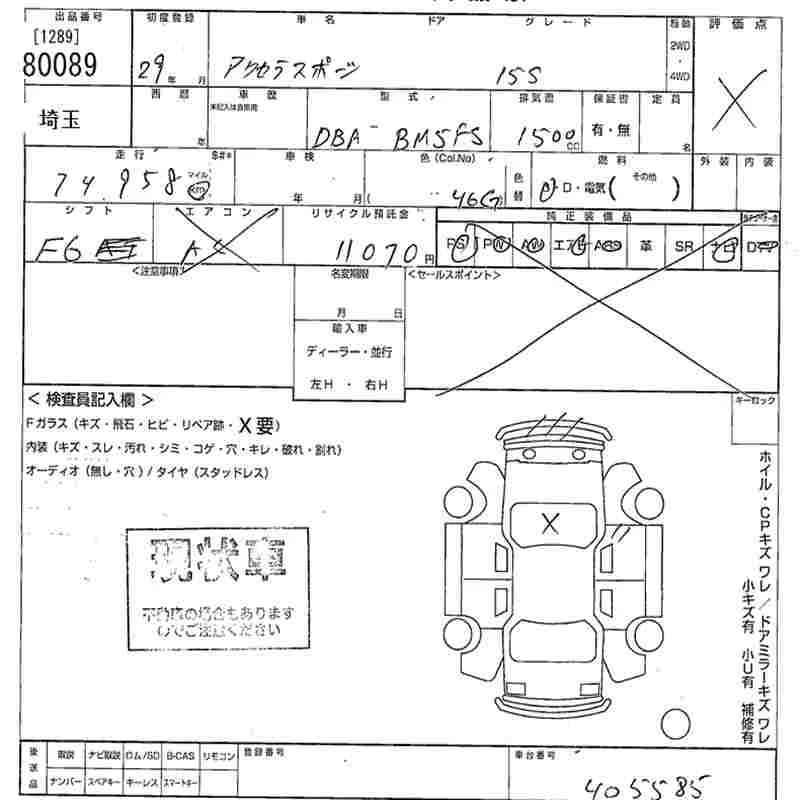 出品番号 初度登録 車名 ドア グレード 駆動 評価点
[1289]
80089 29年 月 アクセラスポーツ 15S 2WD・4WD X
西暦 車歴 型式 排気量 保証書 定員
埼玉 年 未記入は自家用 DBA-BM5FS 1500cc 有・無 名
走行 $#* 車検 色(Col.No) 色替 燃料 外装 内装
74958 マイル km 年 月( 46G) G・D・電気( その他 )
シフト エアコン リサイクル預託金 純正装備品
F6 AC 11070円 PS PW AW エアB 革 SR ナビ
<注意事項> 名変期限 <セールスポイント>
月 日
輸入車
ディーラー・並行
左H・右H
キーロック
<検査員記入欄>
Fガラス(キズ・飛石・ヒビ・リペア跡・X要)
内装(キズ・スレ・汚れ・シミ・コゲ・穴・キレ・破れ・割れ)
オーディオ(無し・穴)/タイヤ(スタッドレス)
X
現状車
不動車の場合もあります
のでご注意ください
ホイル・CPキズ ワレ/ドアミラーキズ ワレ
小キズ有 小U有 補修有
後送品 取説 ナビ取説 ロム/SD B-CAS リモコン 登録番号 車台番号
ナンバー スペアキー キーレス スマートキー 405585